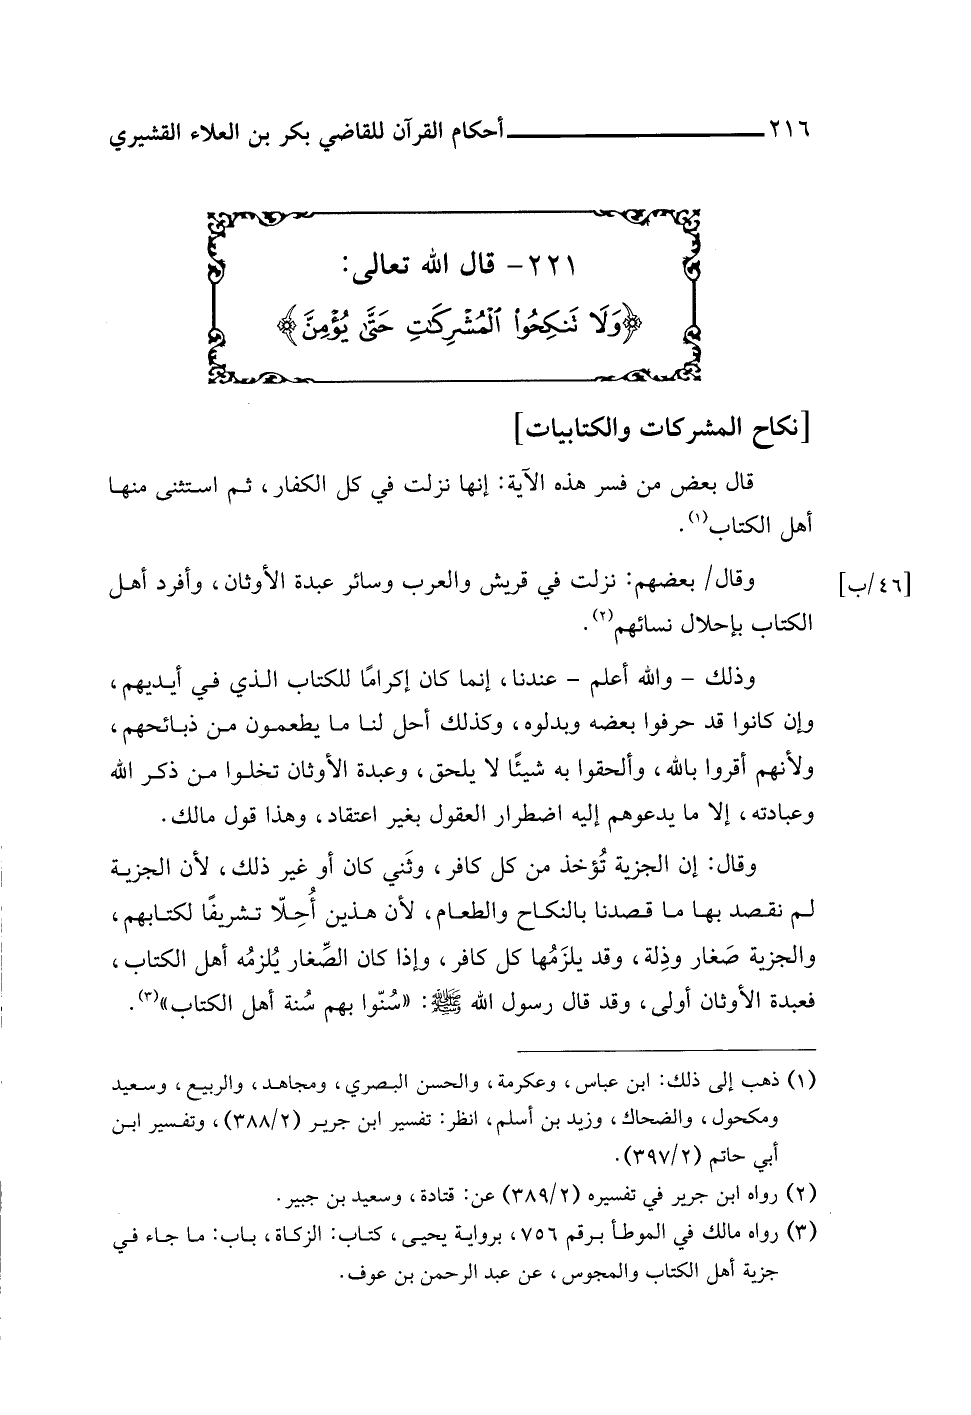 ٢١٦ أحكام القرآن للقاضي بكر بن العلاء القشيري
٢٢١ - قال الله تعالى:
﴿وَلَا تَنكِحُوا۟ ٱلْمُشْرِكَٰتِ حَتَّىٰ يُؤْمِنَّ﴾
[نكاح المشركات والكتابيات]
قال بعض من فسر هذه الآية: إنها نزلت في كل الكفار، ثم استثنى منها
أهل الكتاب(١).
[٤٦/ب] وقال/ بعضهم: نزلت في قريش والعرب وسائر عبدة الأوثان، وأفرد أهل
الكتاب بإحلال نسائهم(٢).
وذلك - والله أعلم - عندنا، إنما كان إكرامًا للكتاب الذي في أيديهم،
وإن كانوا قد حرفوا بعضه وبدلوه، وكذلك أحل لنا ما يطعمون من ذبائحهم،
ولأنهم أقروا بالله، وألحقوا به شيئًا لا يلحق، وعبدة الأوثان تخلوا من ذكر الله
وعبادته، إلا ما يدعوهم إليه اضطرار العقول بغير اعتقاد، وهذا قول مالك.
وقال: إن الجزية تُؤخذ من كل كافر، وثَني كان أو غير ذلك، لأن الجزية
لم نقصد بها ما قصدنا بالنكاح والطعام، لأن هذين أُحِلّا تشريفًا لكتابهم،
والجزية صَغار وذِلة، وقد يلزَمُها كل كافر، وإذا كان الصِّغار يُلزمُه أهل الكتاب،
فعبدة الأوثان أولى، وقد قال رسول الله ﷺ: «سُنّوا بهم سُنة أهل الكتاب»(٣).
(١) ذهب إلى ذلك: ابن عباس، وعكرمة، والحسن البصري، ومجاهد، والربيع، وسعيد
ومكحول، والضحاك، وزيد بن أسلم، انظر: تفسير ابن جرير (٣٨٨/٢)، وتفسير ابن
أبي حاتم (٣٩٧/٢).
(٢) رواه ابن جرير في تفسيره (٣٨٩/٢) عن: قتادة، وسعيد بن جبير.
(٣) رواه مالك في الموطأ برقم ٧٥٦، برواية يحيى، كتاب: الزكاة، باب: ما جاء في
جزية أهل الكتاب والمجوس، عن عبد الرحمن بن عوف.